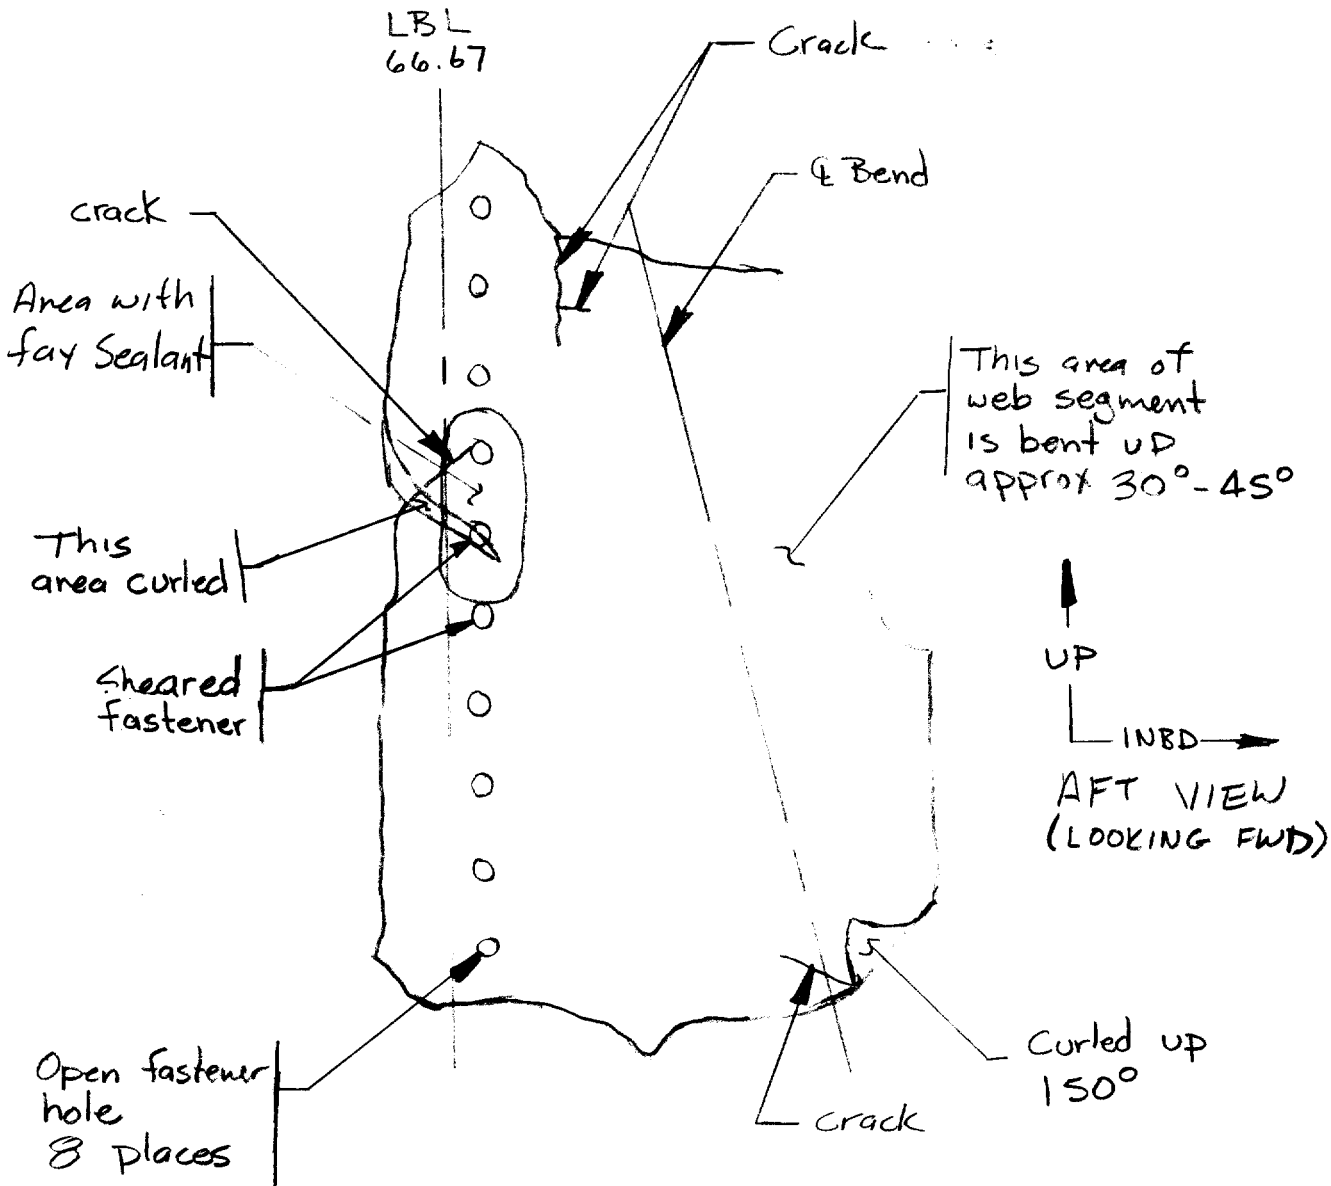 LBL
66.67
Crack
℄ Bend
crack
Area with
fay Sealant
This area of
web segment
is bent up
approx 30°-45°
This
area curled
Sheared
fastener
UP
INBD
AFT VIEW
(LOOKING FWD)
Open fastener
hole
8 places
Curled up
150°
crack